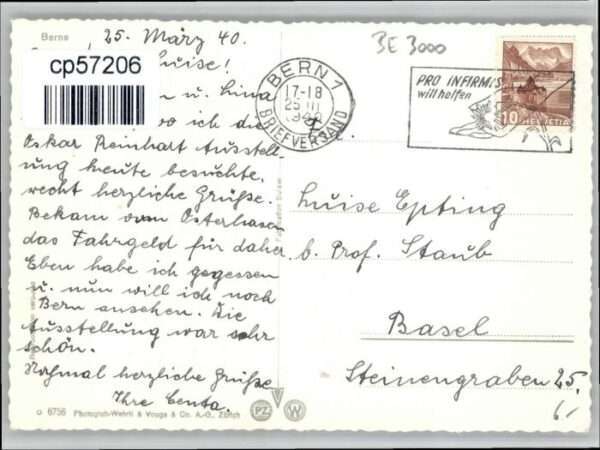 Berne
25. März 40.
BE 3000
cp57206
Luise!
n u. Lina
wo ich die
Oskar Reinhart Ausstell-
ung heute besuchte,
recht herzliche Grüße.
Bekam vom Osterhasen
das Fahrgeld für daher
Eben habe ich gegessen
u. nun will ich noch
Bern ansehen. Die
Ausstellung war sehr
schön.
Nochmal herzliche Grüße
Ihre Centa.
o 6756 Photogr.-Wehrli & Vouga & Co. A.-G., Zürich
PZ W
BERN 1
17-18
25 III
1940
BRIEFVERSAND
PRO INFIRMIS
will helfen
10 HELVETIA
Luise Epting
b. Prof. Staub
Basel
Steinengraben 25.
6.-